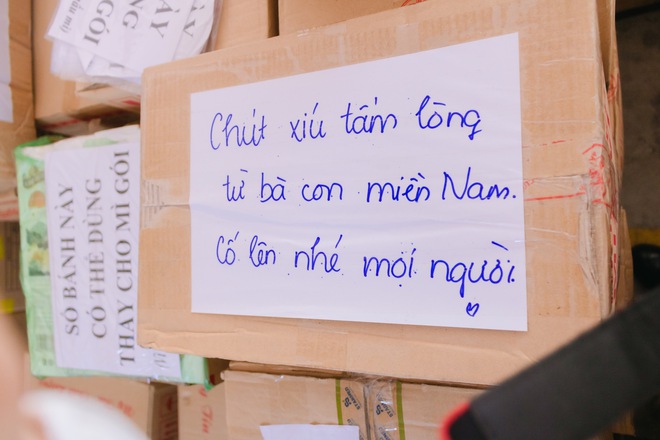 Chút xíu tấm lòng
từ bà con miền Nam.
Cố lên nhé mọi người
SỐ BÁNH NÀY
CÓ THỂ DÙNG
THAY CHO MÌ GÓI